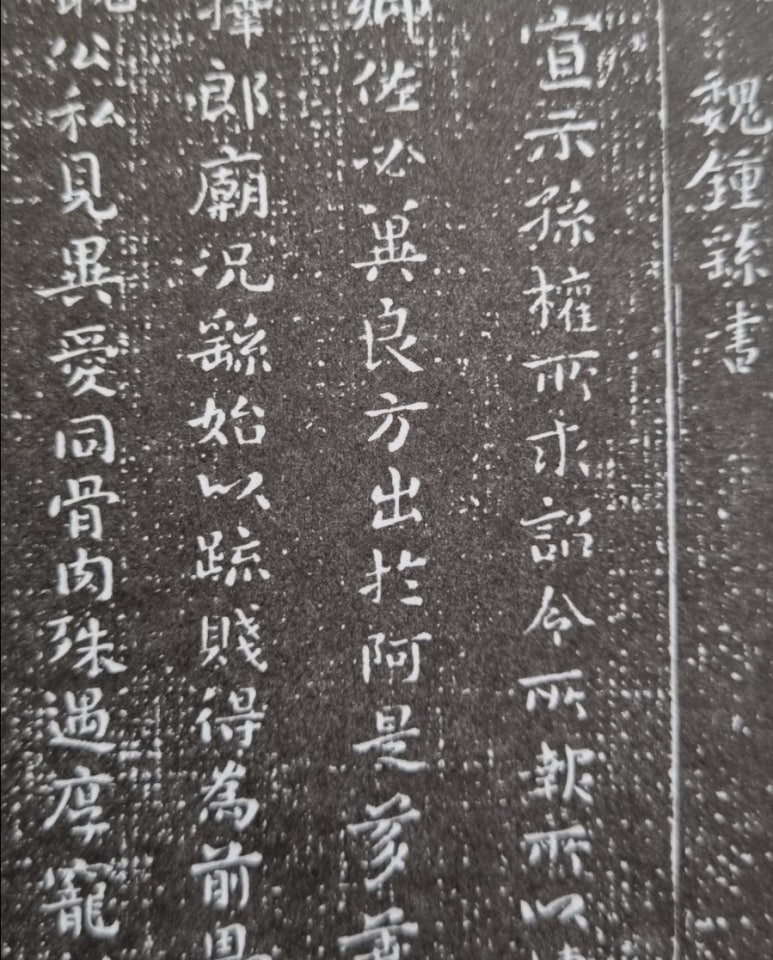 魏鍾繇書
宣示孫權所求詔令所報所以
卿佐必冀良方出於阿是芻
擇郎廟況繇始以疏賤得為前
公私見異愛同骨肉殊遇厚寵